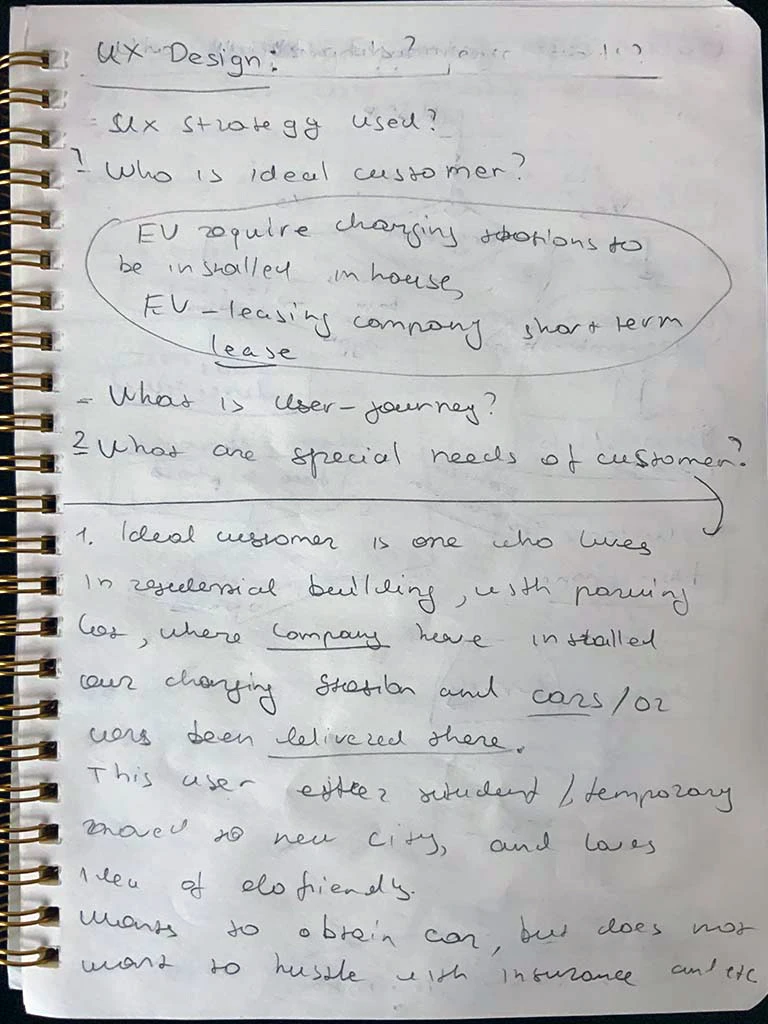 UX Design:
- UX strategy used?
1 - Who is ideal customer?
EV require charging stations to
be installed in house,
EV - leasing company short term
lease
- What is user-journey?
2 - What are special needs of customer?
1. Ideal customer is one who lives
in residensial building, with parking
lot, where company have installed
our charging station and cars/or
been delivered there.
This user either student/temporary
moved to new city, and loves
idea of friendly.
Wants to obtain car, but does not
want to hustle with insurance and etc